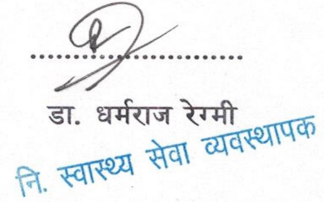 डा. धर्मराज रेग्मी
नि. स्वास्थ्य सेवा व्यवस्थापक